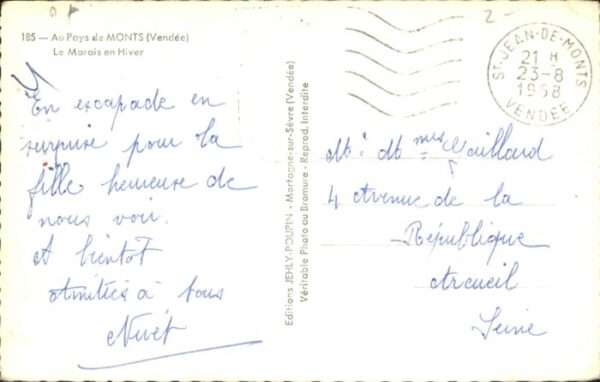 185 — Au Pays de MONTS (Vendée)
Le Marais en Hiver
En escapade en
surprise pour la
fille heureuse de
nous voir.
A bientôt
Amitiés à tous
Editions JEHLY-POUPIN - Mortagne-sur-Sèvre (Vendée)
Véritable Photo au Bromure - Reprod. Interdite
ST-JEAN-DE-MONTS
21 H
23-8
1958
VENDÉE
2-
4 Avenue de la
République
Arcueil
Seine